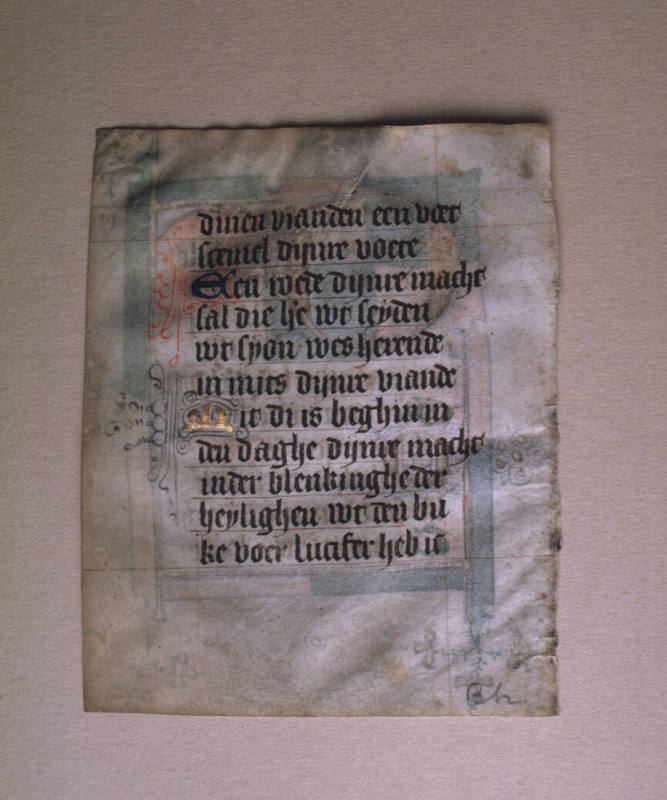 dinen vianden een voet
scemel dijnre voete
Een roede dijnre macht
sal die h'e wt seyden
wt syon wes herende
in mits dijnre viande
Mit di is beghin in
den daghe dijnre macht
inder blenkinghe der
heylighen wt den bu
ke voer lucifer heb ic